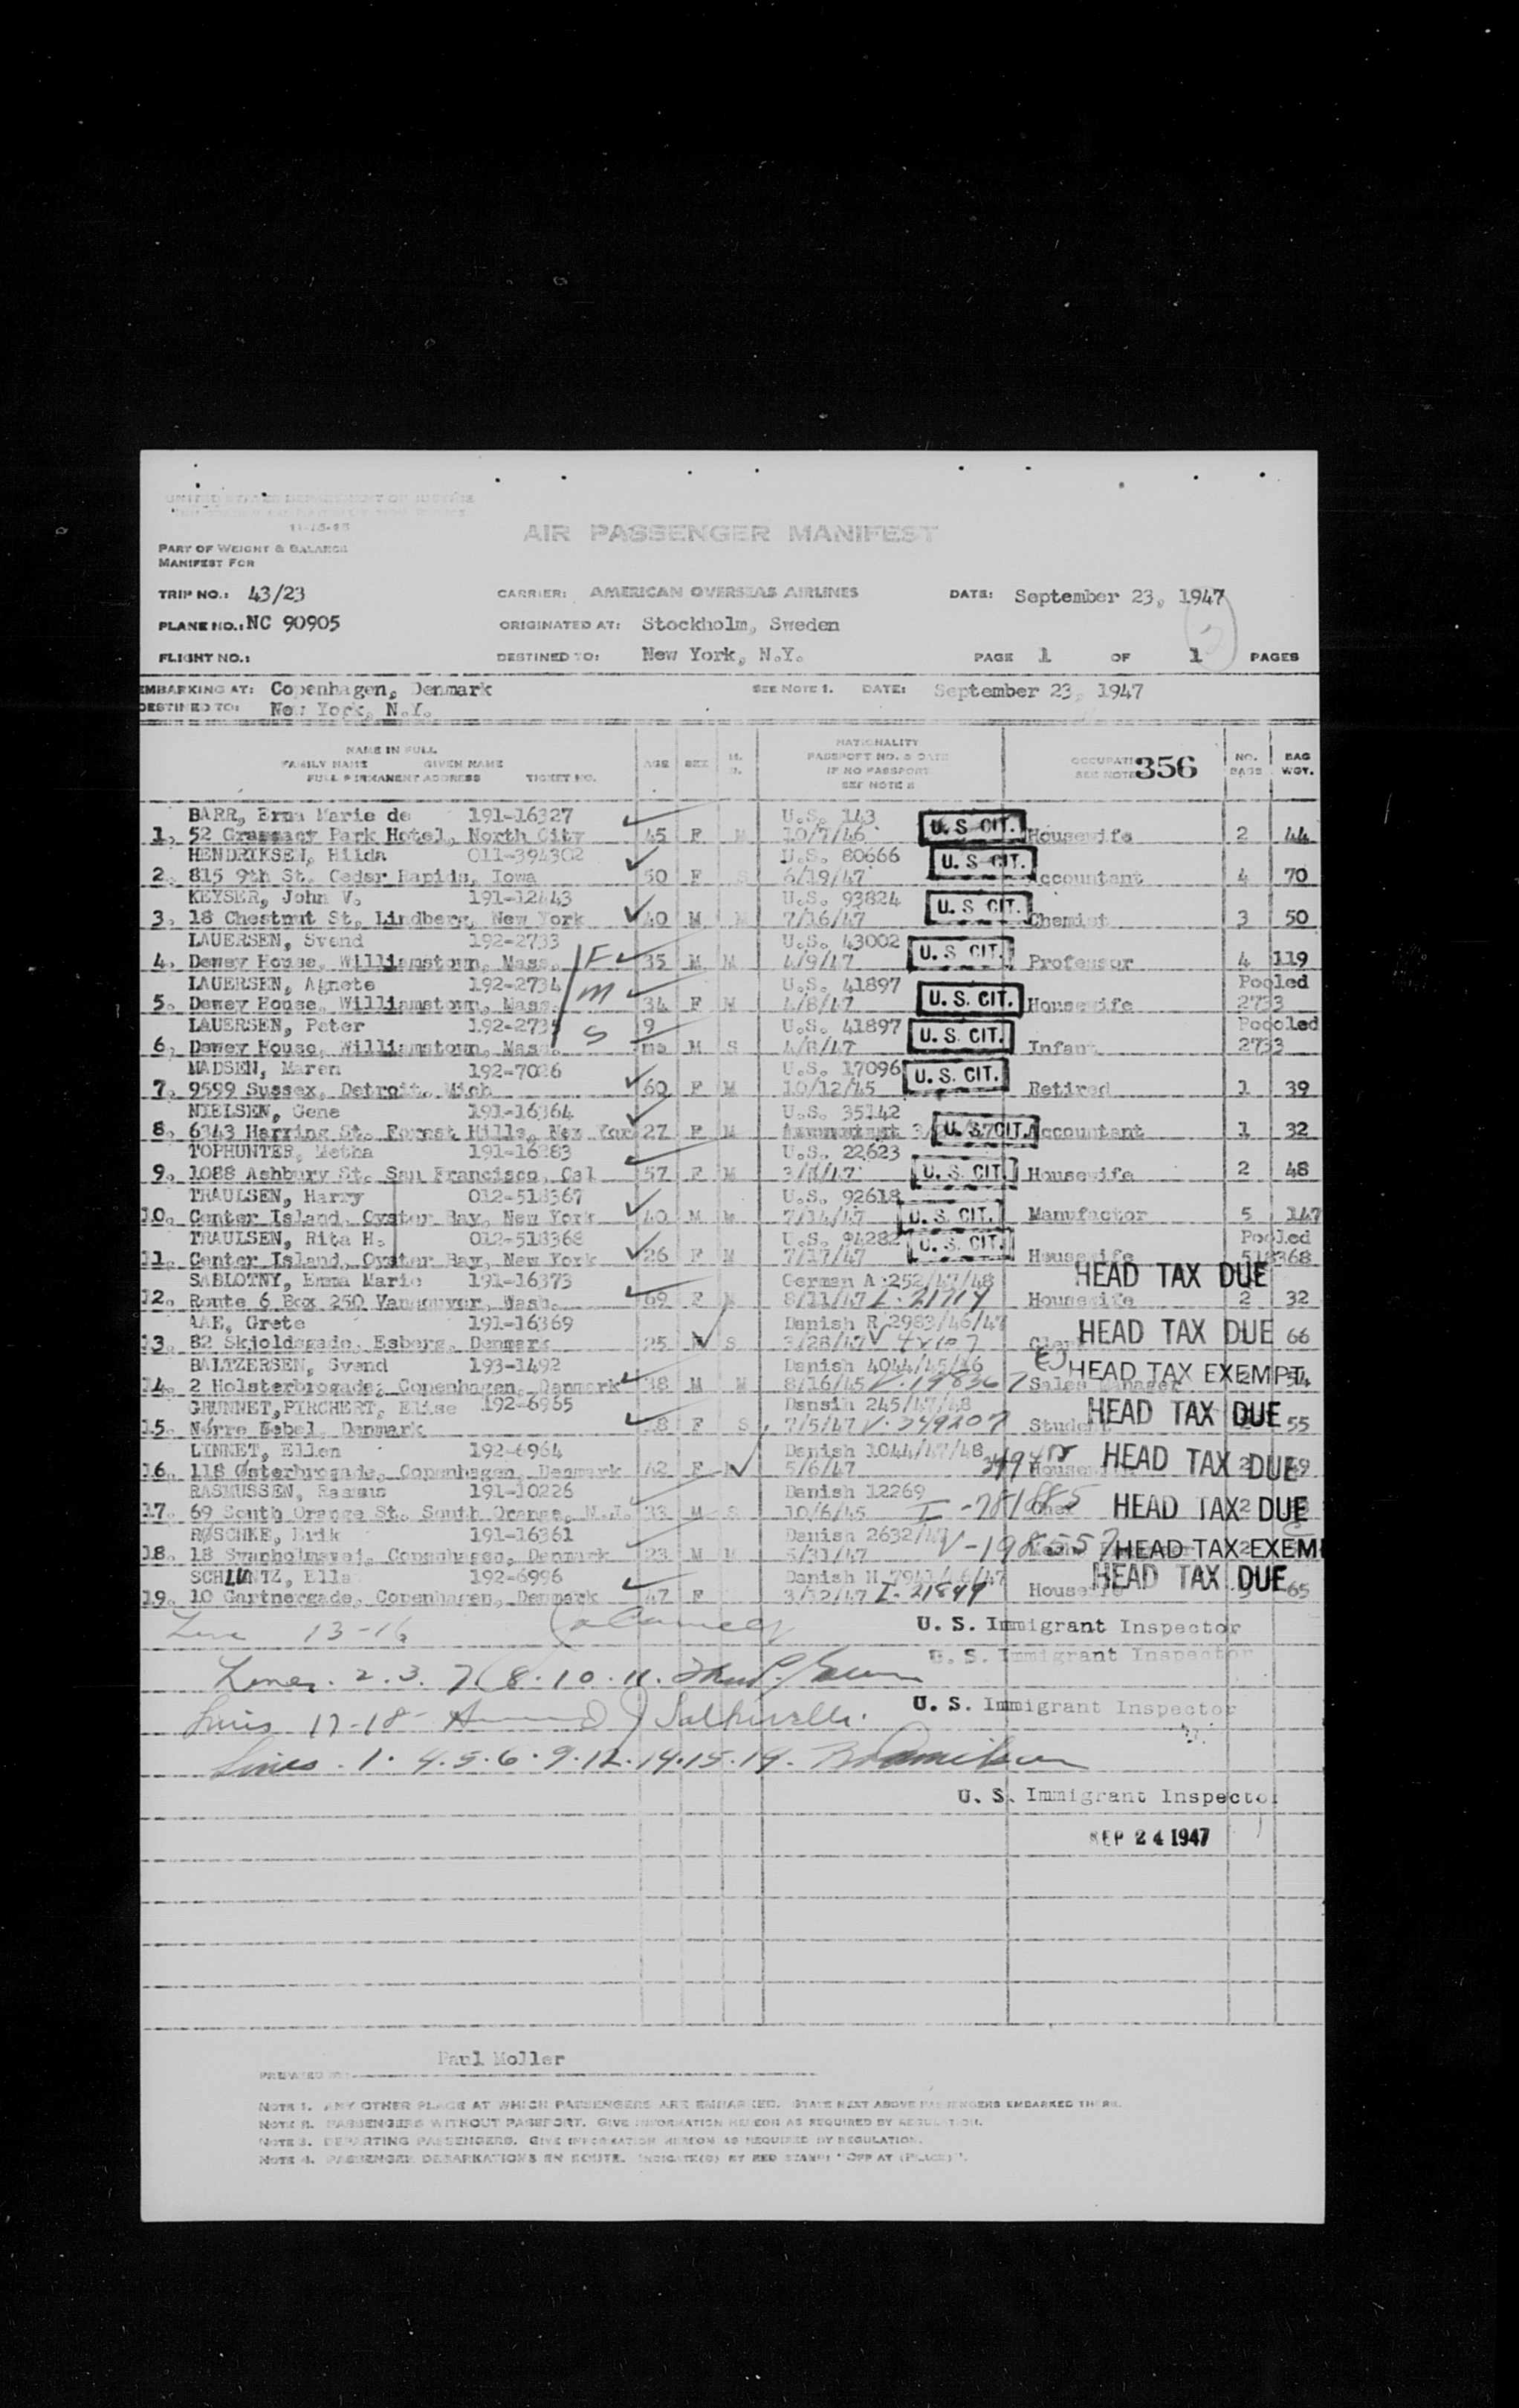 UNITED STATES DEPARTMENT OF JUSTICE
11-15-45
AIR PASSENGER MANIFEST
PART OF WEIGHT & BALANCE
MANIFEST FOR
TRIP NO.: 43/23 CARRIER: AMERICAN OVERSEAS AIRLINES DATE: September 23, 1947
PLANE NO.: NC 90905 ORIGINATED AT: Stockholm, Sweden
FLIGHT NO.: DESTINED TO: New York, N.Y. PAGE 1 OF 1 PAGES
EMBARKING AT: Copenhagen, Denmark SEE NOTE 1. DATE: September 23, 1947
DESTINED TO: New York, N.Y.
NAME IN FULL NATIONALITY
FAMILY NAME GIVEN NAME AGE SEX PASSPORT NO. & DATE OCCUPATI 356 NO. BAG
FULL PERMANENT ADDRESS TICKET NO. IF NO PASSPORT SEE NOTE BAGS WGT.
SEE NOTE 2
BARR, Erna Marie de 191-16327 U.S. 143
1. 52 Gramacy Park Hotel, North City 45 F M 10/7/46 U. S. CIT. Housewife 2 44
HENDRIKSEN, Hilda 011-394302 U.S. 80666
2. 815 9th St. Cedar Rapids, Iowa 50 F S 6/19/47 U. S. CIT. Accountant 4 70
KEYSER, John V. 191-12443 U.S. 93824
3. 18 Chestnut St. Lindberg, New York 40 M M 7/16/47 U. S. CIT. Chemist 3 50
LAUERSEN, Svend 192-2733 U.S. 43002
4. Dewey House, Williamstown, Mass. F 35 M M 4/9/47 U. S. CIT. Professor 4 119
LAUERSEN, Agnete 192-2734 U.S. 41897 Pooled
5. Dewey House, Williamstown, Mass. m 34 F M 4/8/47 U. S. CIT. Housewife 2733
LAUERSEN, Peter 192-2735 9 U.S. 41897 Pocoled
6. Dewey House, Williamstown, Mass. S mo M S 4/8/47 U. S. CIT. Infant 2733
MADSEN, Maren 192-7026 U.S. 17096
7. 9599 Sussex, Detroit, Mich 60 F M 10/12/45 U. S. CIT. Retired 1 39
NIELSEN, Gene 191-16364 U.S. 35142
8. 6343 Herring St. Forest Hills, New Yor 27 F M U. S. CIT. Accountant 1 32
TOPHUNTER, Metha 191-16283 U.S. 22623
9. 1088 Ashbury St. San Francisco, Cal 57 F M 3/8/47 U. S. CIT. Housewife 2 48
TRAULSEN, Harry 012-518367 U.S. 92618
10. Center Island, Oyster Bay, New York 40 M M 7/14/47 U. S. CIT. Manufactor 5 147
TRAULSEN, Rita H. 012-518368 U.S. 94282 Pooled
11. Center Island, Oyster Bay, New York 26 F M 7/17/47 U. S. CIT. Housewife 518368
SABLOTNY, Emma Marie 191-16373 German A 252/47/48 HEAD TAX DUE
12. Route 6 Box 250 Vancouver, Wash. 69 F M 8/11/47 I-21719 Housewife 2 32
AAE, Grete 191-16369 Danish R 2983/46/47
13. 82 Skjoldsgade, Esberg, Denmark 25 S 3/28/47 HEAD TAX DUE 66
BALTZERSEN, Svend 193-1492 Danish 4044/45/46
14. 2 Holsterbrogade, Copenhagen, Denmark 38 M M 8/16/45 V-198367 Sales Manager HEAD TAX EXEMPT
GRUNNET, PIRCHERT, Elise 192-6965 Dansih 245/47/48
15. Nørre Nebel, Denmark 18 F S 7/5/47 V-349207 Student HEAD TAX DUE 55
LINNET, Ellen 192-6964 Danish 1044/47/48
16. 118 Østerbrogade, Copenhagen, Denmark 42 F 5/6/47 HEAD TAX DUE
RASMUSSEN, Rasmus 191-10226 Danish 12269
17. 69 South Orange St. South Orange, N.J. 33 M S 10/6/45 I-781885 Chef HEAD TAX DUE 2
RØSCHKE, Erik 191-16361 Danish 2632/47
18. 18 Svanholmsvej, Copenhagen, Denmark 23 M M 5/31/47 V-198557 HEAD TAX EXEM 2
SCHLUNTZ, Ella 192-6996 Danish H 7941/46/47
19. 10 Gartnergade, Copenhagen, Denmark 47 F 3/12/47 I-21849 House HEAD TAX DUE 65
Line 13-16 U. S. Immigrant Inspector
U. S. Immigrant Inspector
Lines. 2. 3. 7. 8. 10. 11.
U. S. Immigrant Inspector
Lines 17-18
Lines. 1. 4. 5. 6. 9. 12. 14. 15. 19.
U. S. Immigrant Inspector
SEP 24 1947
Paul Moller
PREPARED BY:
NOTE 1. ANY OTHER PLACE AT WHICH PASSENGERS ARE EMBARKED. STATE NEXT ABOVE PASSENGERS EMBARKED THERE.
NOTE 2. PASSENGERS WITHOUT PASSPORT. GIVE INFORMATION HEREON AS REQUIRED BY REGULATION.
NOTE 3. DEPARTING PASSENGERS. GIVE INFORMATION HEREON AS REQUIRED BY REGULATION.
NOTE 4. PASSENGER DEBARKATIONS EN ROUTE. INDICATE(D) BY RED STAMP: "OFF AT (PLACE)".